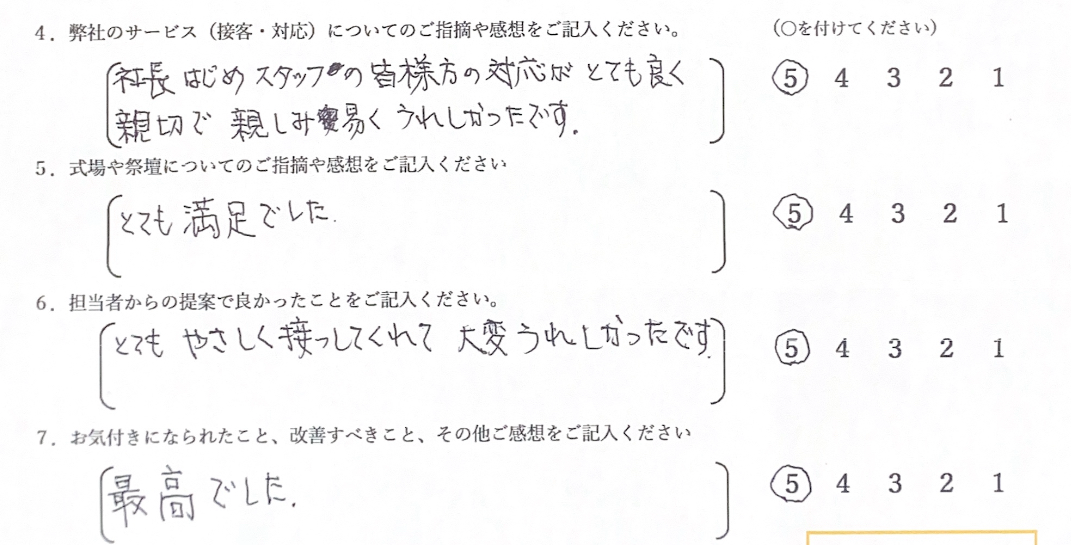 4．弊社のサービス（接客・対応）についてのご指摘や感想をご記入ください。 （○を付けてください）
社長はじめスタッフの皆様方の対応がとても良く 5 4 3 2 1
親切で親しみ易くうれしかったです.
5．式場や祭壇についてのご指摘や感想をご記入ください
とても満足でした. 5 4 3 2 1
6．担当者からの提案で良かったことをご記入ください。
とてもやさしく接っしてくれて大変うれしかったです. 5 4 3 2 1
7．お気付きになられたこと、改善すべきこと、その他ご感想をご記入ください
最高でした. 5 4 3 2 1